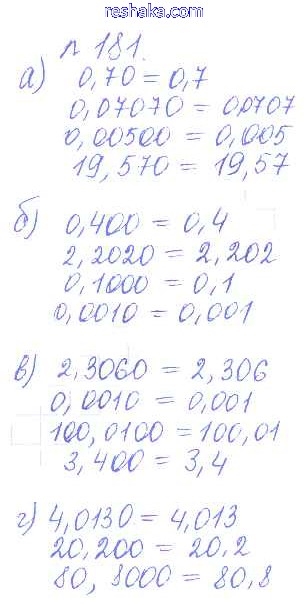 reshaka.com
п 181.
а) 0,70 = 0,7
0,07070 = 0,0707
0,00500 = 0,005
19,570 = 19,57
б) 0,400 = 0,4
2,2020 = 2,202
0,1000 = 0,1
0,0010 = 0,001
в) 2,3060 = 2,306
0,0010 = 0,001
100,0100 = 100,01
3,400 = 3,4
г) 4,0130 = 4,013
20,200 = 20,2
80,8000 = 80,8